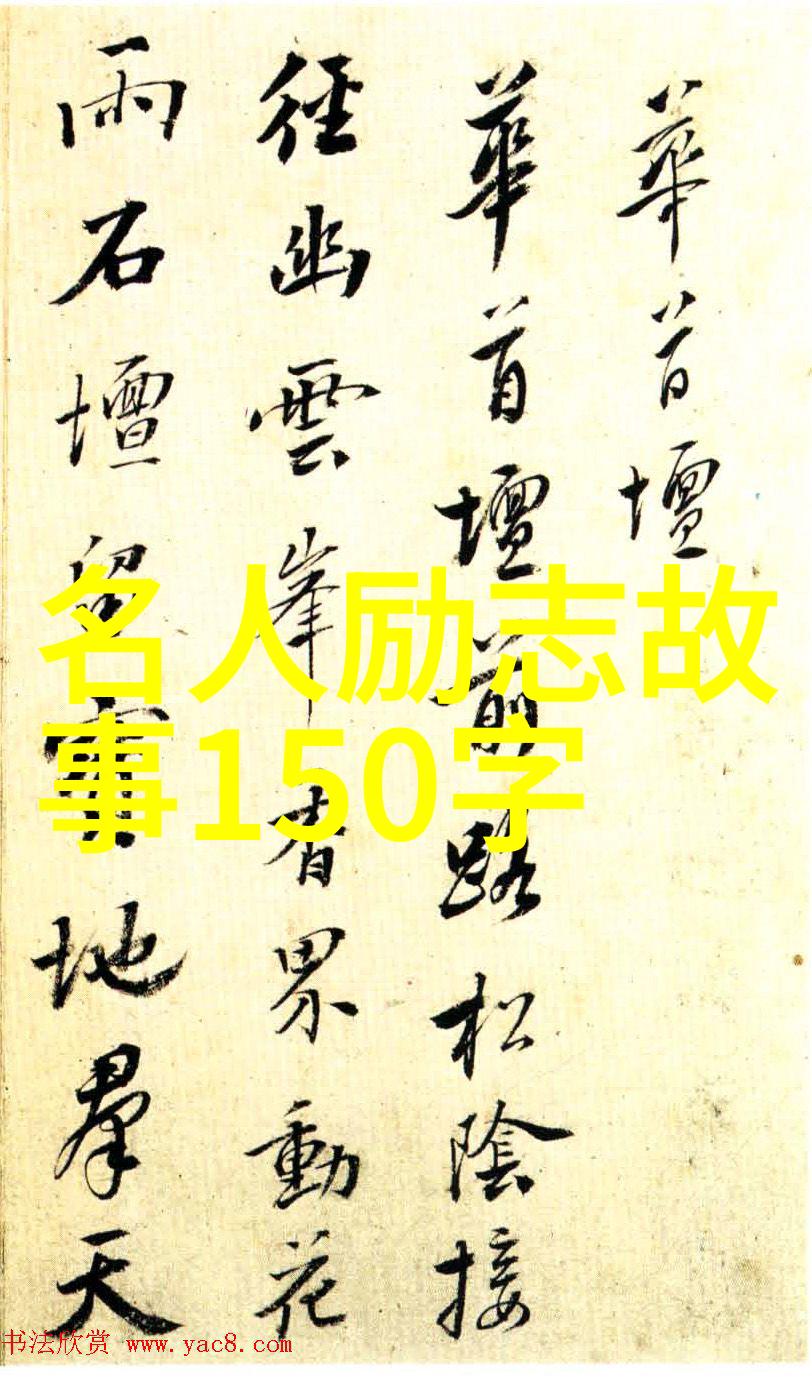 華首壇
華首壇前路松陰接
徑幽雲峯香界動花
雨石壇留實地羣天
名人励志故
事150字
书法欣赏 www.yac8.com